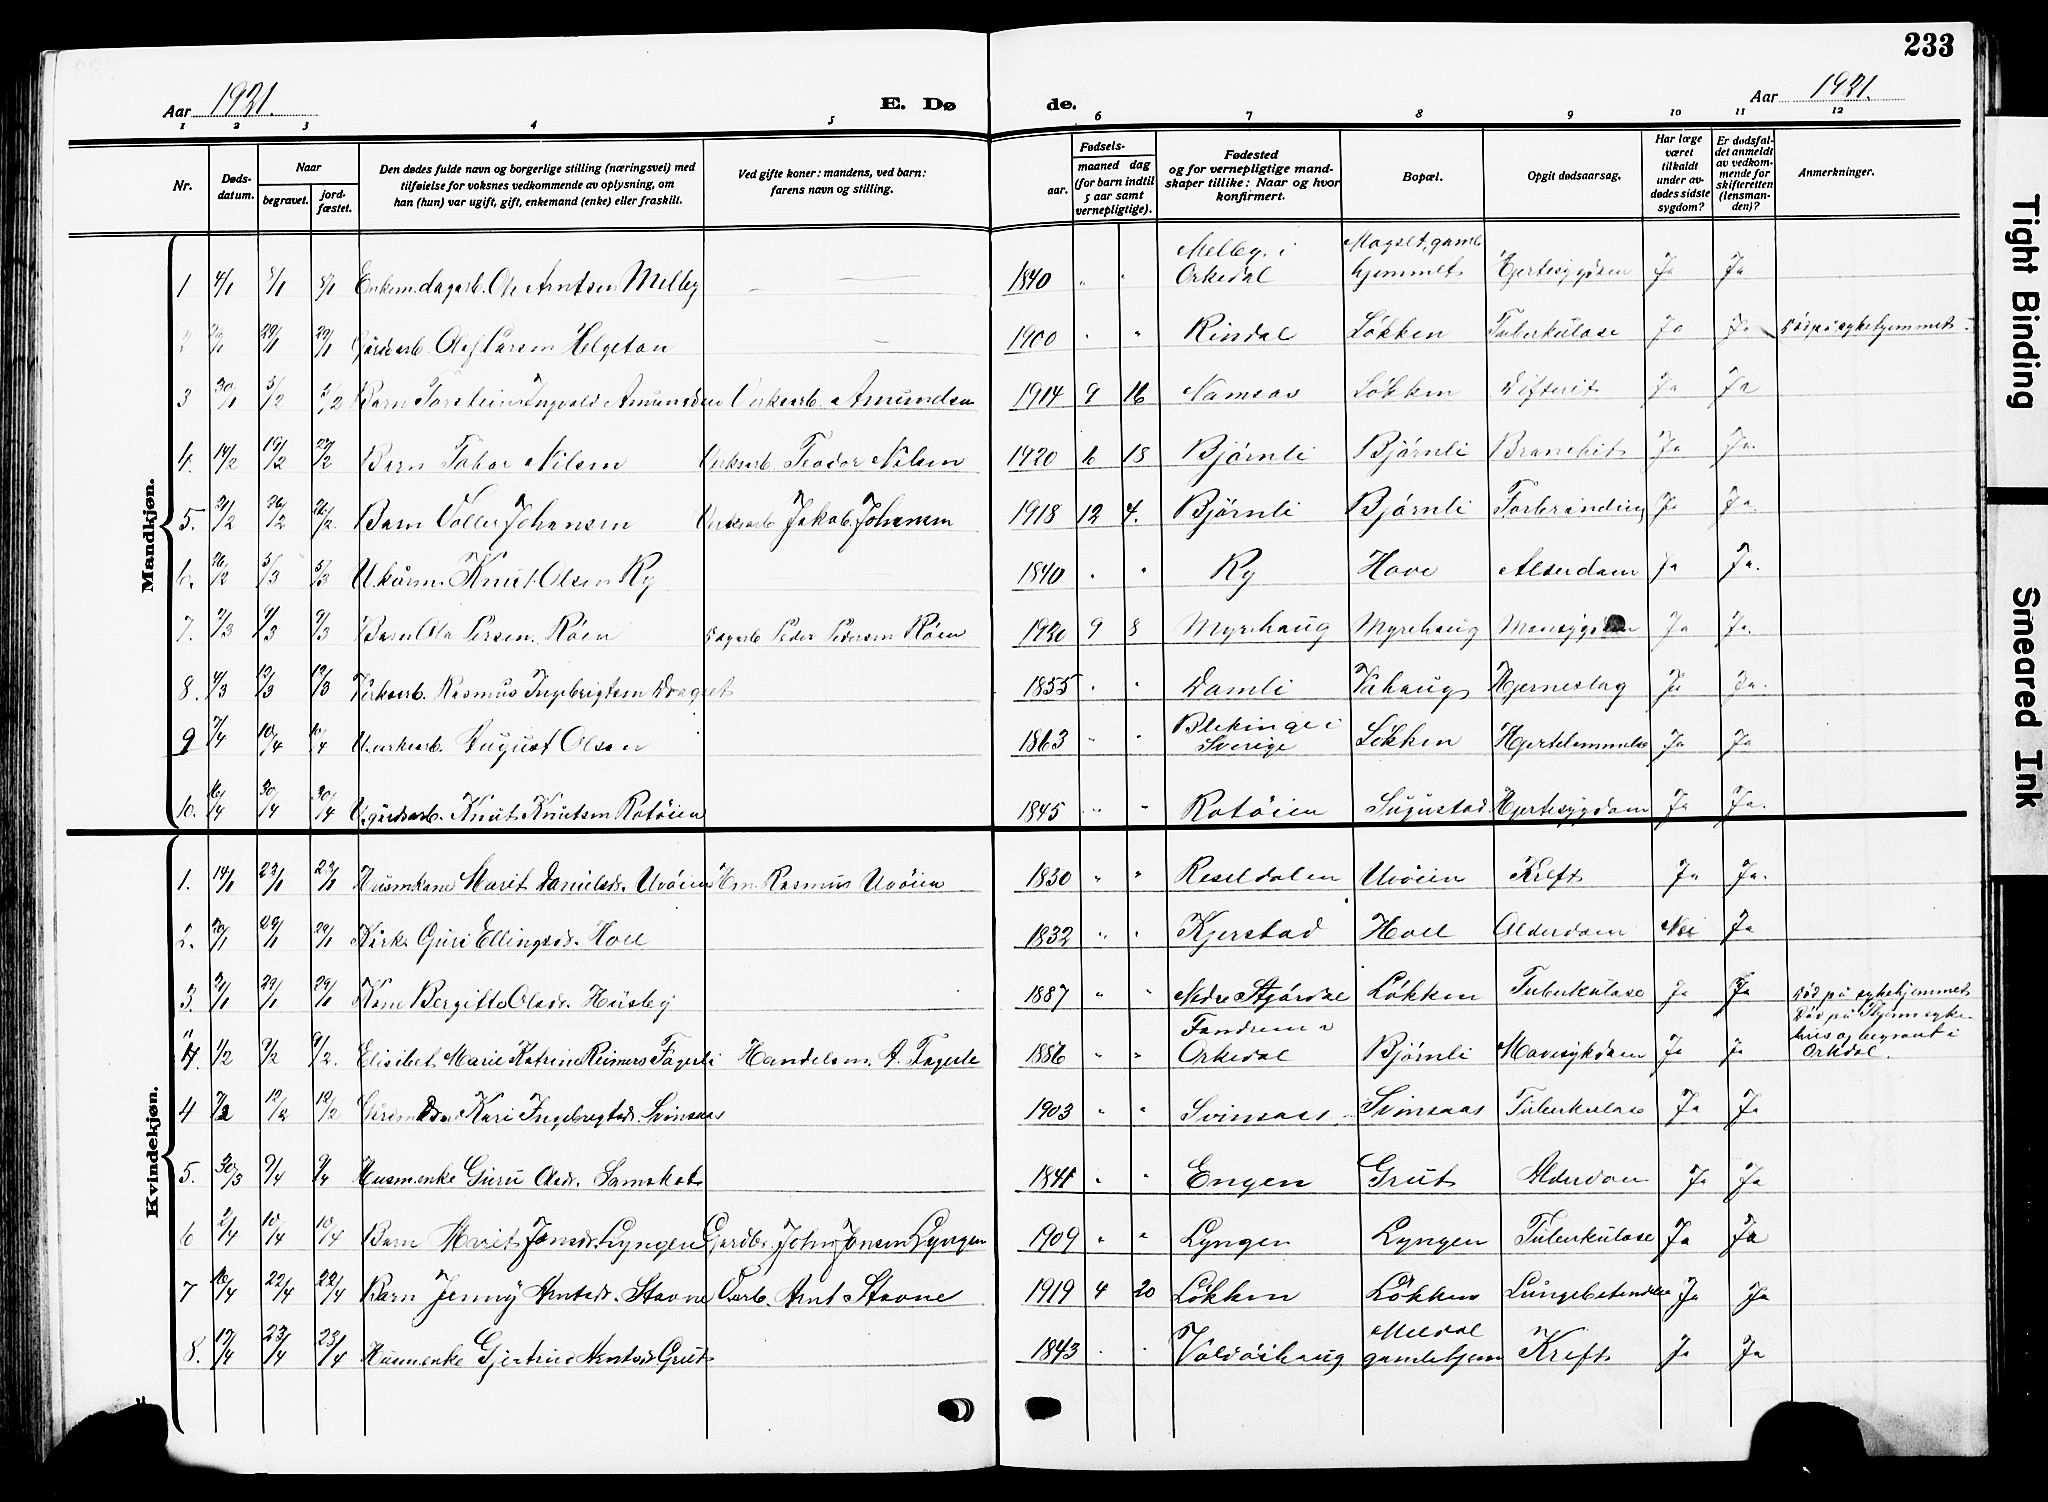 233
Aar 1921. E. Dø de. Aar 1921.
1 2 3 4 5 6 7 8 9 10 11 12
Nr. Døds-datum. Naar begravet. jord-fæstet. Den dødes fulde navn og borgerlige stilling (næringsvei) med tilføielse for voksnes vedkommende av oplysning, om han (hun) var ugift, gift, enkemand (enke) eller fraskilt. Ved gifte koner: mandens, ved barn: farens navn og stilling. Fødsels- aar. maaned dag (for barn indtil 5 aar samt vernepligtige). Fødested og for vernepligtige mand-skaper tillike: Naar og hvor konfirmert. Bopæl. Opgit dødsaarsag. Har læge været tilkaldt under av-dødes sidste sygdom? Er dødsfal-det anmeldt av vedkom-mende for skifteretten (lensman-den)? Anmerkninger.
Mandkjøn.
1 4/1 8/1 8/1 Enkem. dagarb. Ole Arntsen Melby 1840 Melby i Orkedal hjemmet Hjertesygdom Ja Ja
29/1 29/1 Gårdarb. Olaf Larsen Helgetun 1900 Rindal Løkken Tuberkulose Ja Ja Død på sykehjemmet.
3 30/1 5/2 5/2 Barn Torstein Ingvald Amundsen Verksarb. Amundsen 1914 9 16 Namsos Løkken Difterit Ja Ja
4. 14/2 19/2 Barn Nilsen Verksarb. Teodor Nilsen 1920 6 18 Bjørnli Bjørnli Bronchit Ja Ja.
5. 21/2 26/2 26/2. Barn Johansen Verksarb. Jakob Johansen 1918 12 4. Bjørnli Bjørnli Forbrænding Ja Ja.
6. 26/2 5/3 5/3 Knut Olsen Ry 1840 Ry Hove Alderdom Ja Ja.
7. 9/3 9/3 Barn Ola Persen Røen Dagarb. Peder Pedersen Røen 1920 9 8 Myrehaug Myrehaug Ja Ja.
8. 4/3 12/3 12/3 Verksarb. Rasmus Ingebrigtsen Dragset 1855 Damli Hjerneslag Ja Ja.
9 7/4 10/4 10/4 August Olsen 1863 Blekinge i Sverige Løkken Hjertelammelse Ja Ja
10. 16/4 30/4 30/4 Knut Knutsen Rotøien 1845 Rotøien Hjertesygdom Ja Ja.
Kvindekjøn.
1. 14/1 22/1 22/1 Husmkone Marit Danielsd. Uvøien Hm. Rasmus Uvøien 1830 Reseldalen Uvøien Kreft Ja Ja.
2. 20/1 29/1 29/1 Guri Ellingsd. Holl 1832 Kjerstad Holl Alderdom Nei Ja
3. 21/1 29/1 29/1 Kone Bergitte Olsd. Husby 1887 Nedre Stjørdal Løkken Tuberkulose Ja Ja Død på sykehjemmet
4. 1/2 9/2 9/2. Elisabet Marie Katrine Reimers Fagerli Handelsm. A. Fagerli 1886 Fandrem i Orkedal Bjørnli Mavesykdom Ja Ja Død på Tr.hjems syke-hus og begravet i Orkdal.
4 7/2 12/2 12/2 Kari Ingebrigtsd. Svinsaas 1903 Svinsaas Svinsaas Tuberkulose Ja Ja
5. 30/3 9/4 9/4 Husmenke Guru Olsd. Lamskot 1841 Engen Grut Alderdom Ja Ja
6 2/4 10/4 10/4 Barn Marit Jonsd. Lyngen Gardbr. John Jonsen Lyngen 1909 Lyngen Lyngen Tuberkulose Ja Ja
7 16/4 22/4 22/4 Barn Jenny Arntsd. Stavne Arnt Stavne 1919 4 20 Løkken Løkken Lungebetendelse Ja Ja
8. 17/4 23/4 23/4 Husmenke Gjertrud Arntsd. Grut 1843 Meldal gamlehjem Kreft Ja Ja
Tight Binding
Smeared Ink